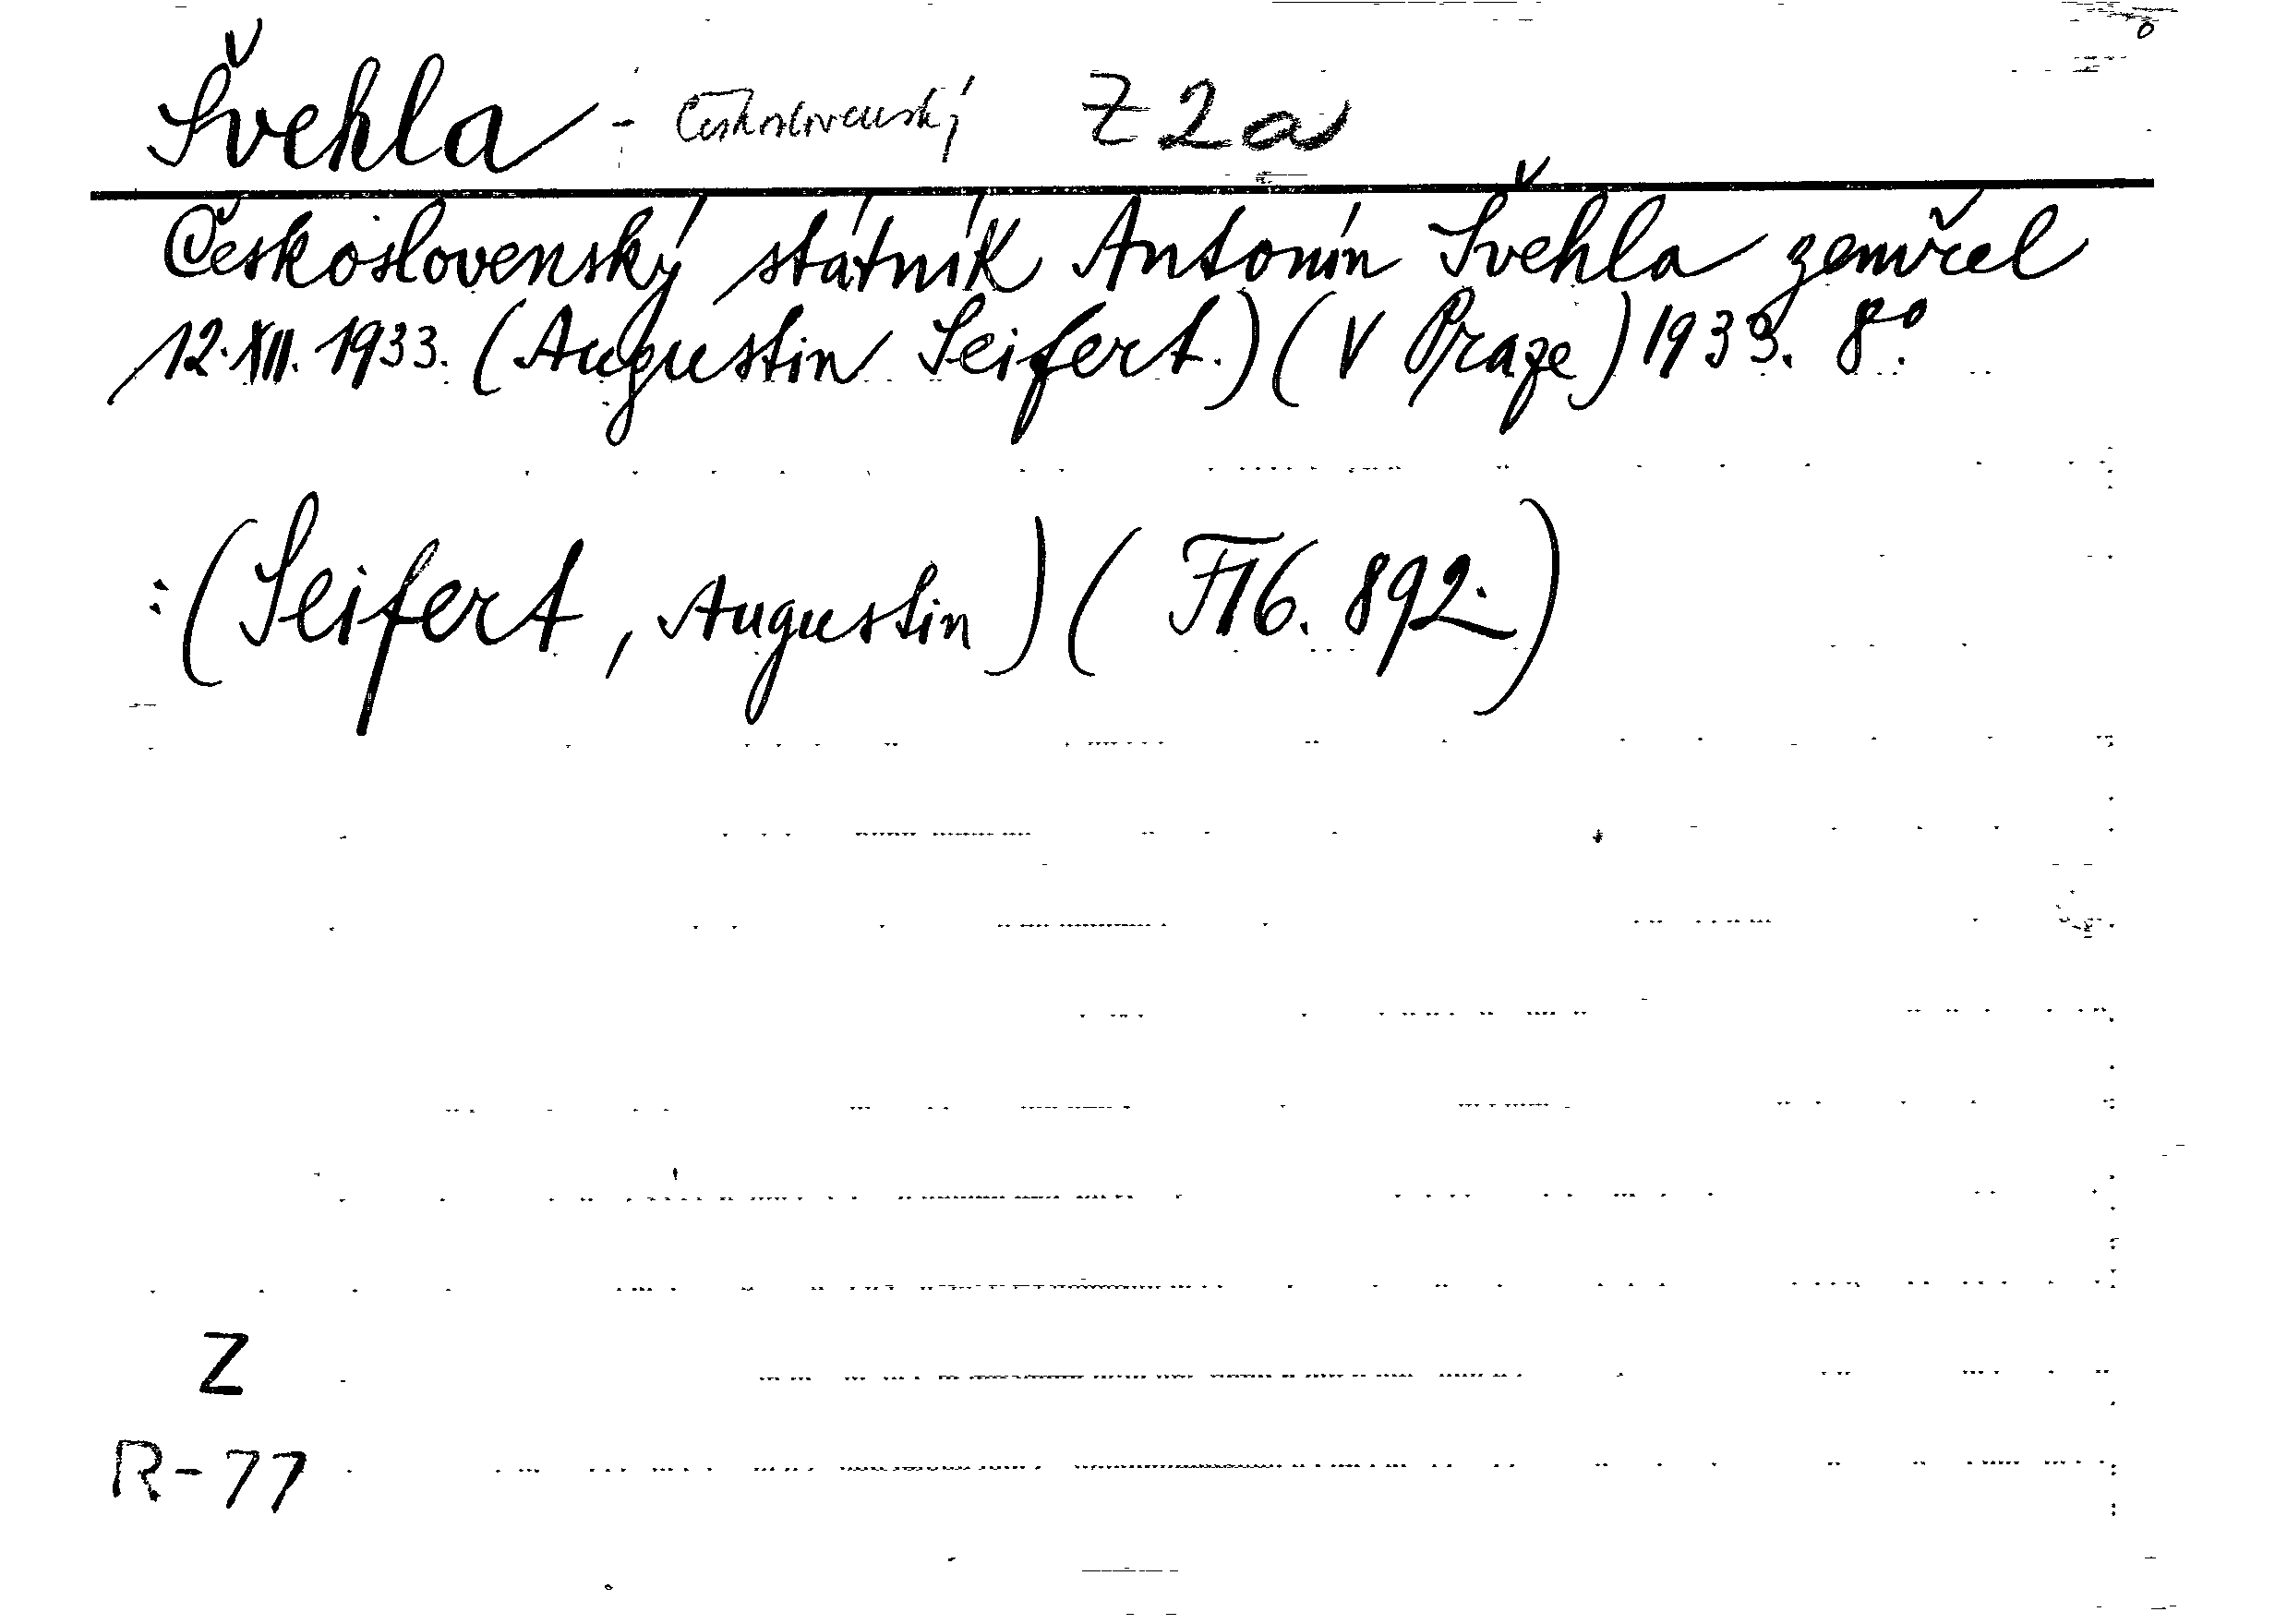 Švehla - Československý Z 2a
Československý státník Antonín Švehla zemřel
12. XII. 1933. (Augustin Seifert.) (V Praze) 1933. 8°.
: (Seifert, Augustin) ( F16. 892.)
Z
R-77